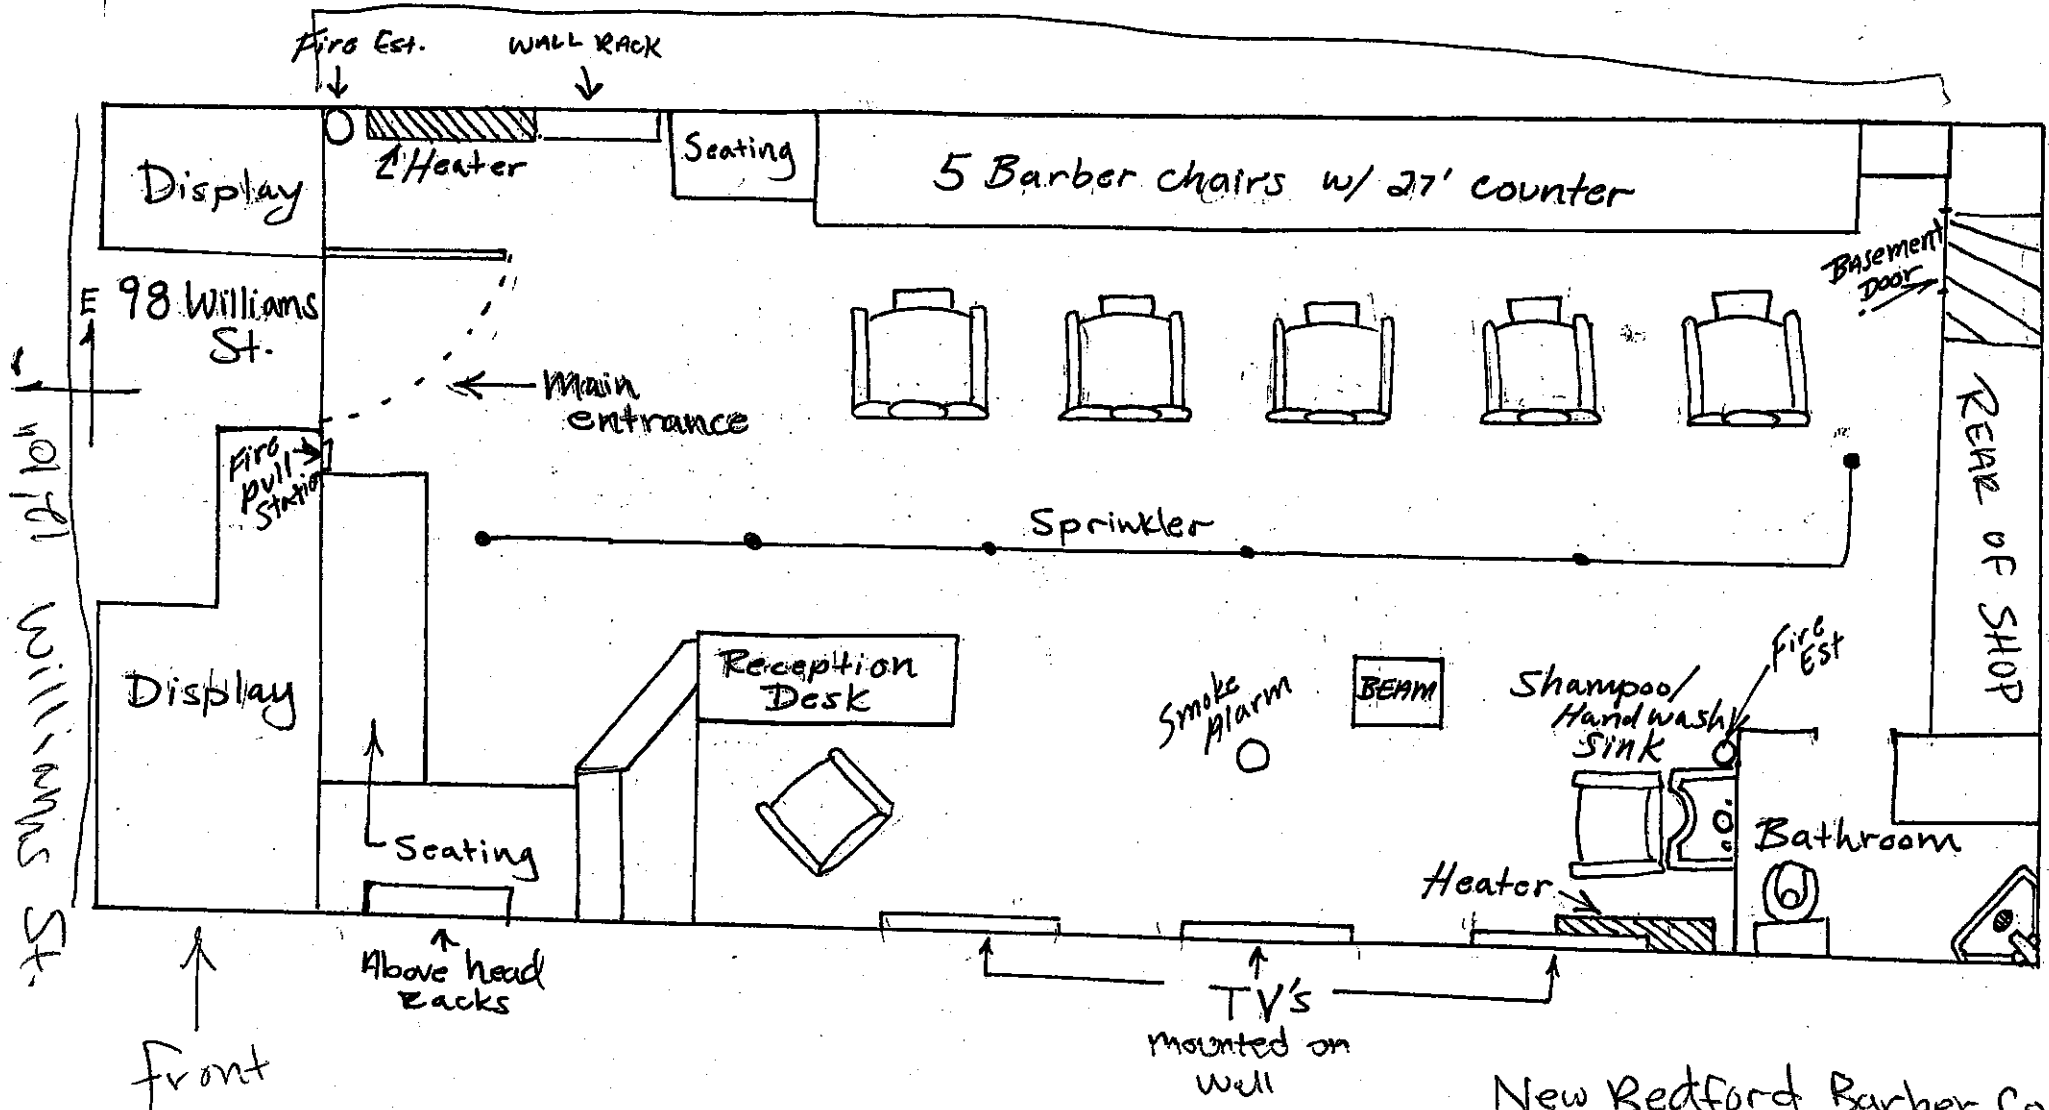 Fire Est.
WALL RACK
Display
Heater
Seating
5 Barber chairs w/ 27' counter
98 Williams
St.
E
Basement
Door
Main
entrance
Fire
pull
Station
Sprinkler
REAR OF SHOP
Williams St.
Display
Reception
Desk
Smoke
Alarm
BEAM
Shampoo/
Handwash
Sink
Fire
Est
Seating
Bathroom
Heater
Above head
Racks
TV's
mounted on
wall
front
New Bedford Barber Co